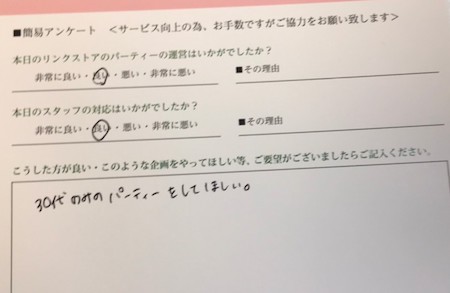 ■簡易アンケート　＜サービス向上の為、お手数ですがご協力をお願い致します＞
本日のリンクストアのパーティーの運営はいかがでしたか？
非常に良い・良い・悪い・非常に悪い　■その理由
本日のスタッフの対応はいかがでしたか？
非常に良い・良い・悪い・非常に悪い　■その理由
こうした方が良い・このような企画をやってほしい等、ご要望がございましたらご記入ください。
30代のみのパーティーをしてほしい。